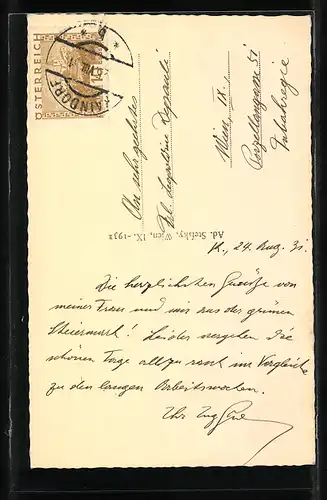 ÖSTERREICH
KAINDORF
An sehr geehrtes
Frl. Leopoldine
Wien, IX.
Porzellangasse 51
Tabakregie
Ad. Stefsky, Wien, IX. -1932
K., 24. Aug. 31.
Die herzlichsten Grüße von
meiner Frau und mir aus der grünen
Steiermark! Leider vergehen die
schönen Tage allzu rasch im Vergleiche
zu den langen Arbeitswochen.
Ihr